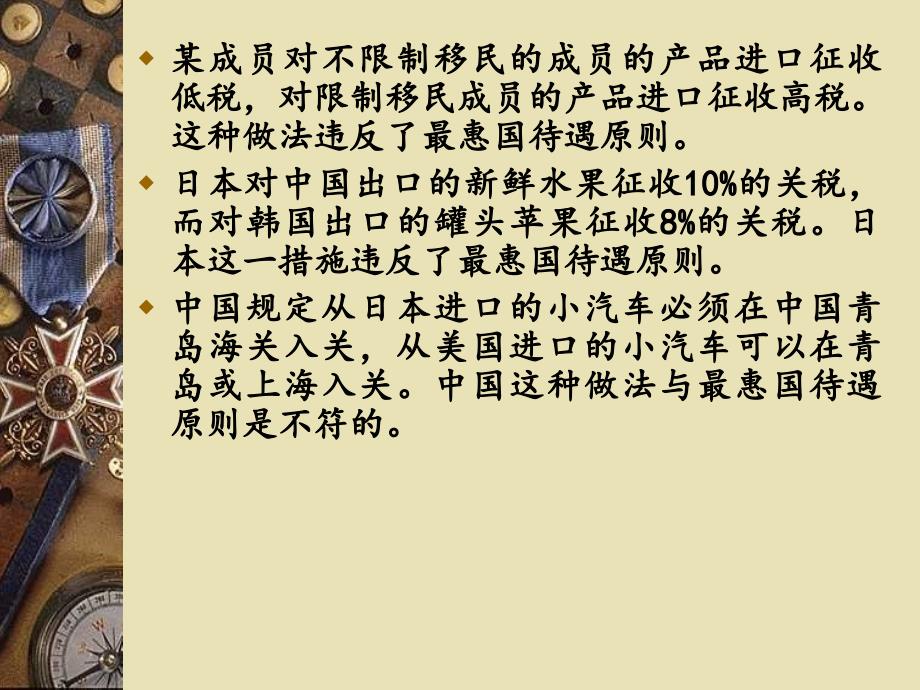 某成员对不限制移民的成员的产品进口征收
低税，对限制移民成员的产品进口征收高税。
这种做法违反了最惠国待遇原则。
日本对中国出口的新鲜水果征收10%的关税，
而对韩国出口的罐头苹果征收8%的关税。日
本这一措施违反了最惠国待遇原则。
中国规定从日本进口的小汽车必须在中国青
岛海关入关，从美国进口的小汽车可以在青
岛或上海入关。中国这种做法与最惠国待遇
原则是不符的。